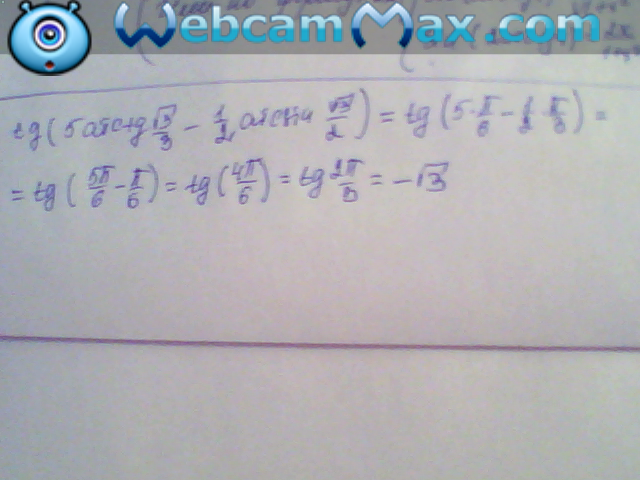 WebcamMax.com
tg(5arctg √3/3 − 1/2 arcsin √3/2) = tg(5·π/6 − 1/2·π/3) =
= tg(5π/6 − π/6) = tg(4π/6) = tg 2π/3 = −√3